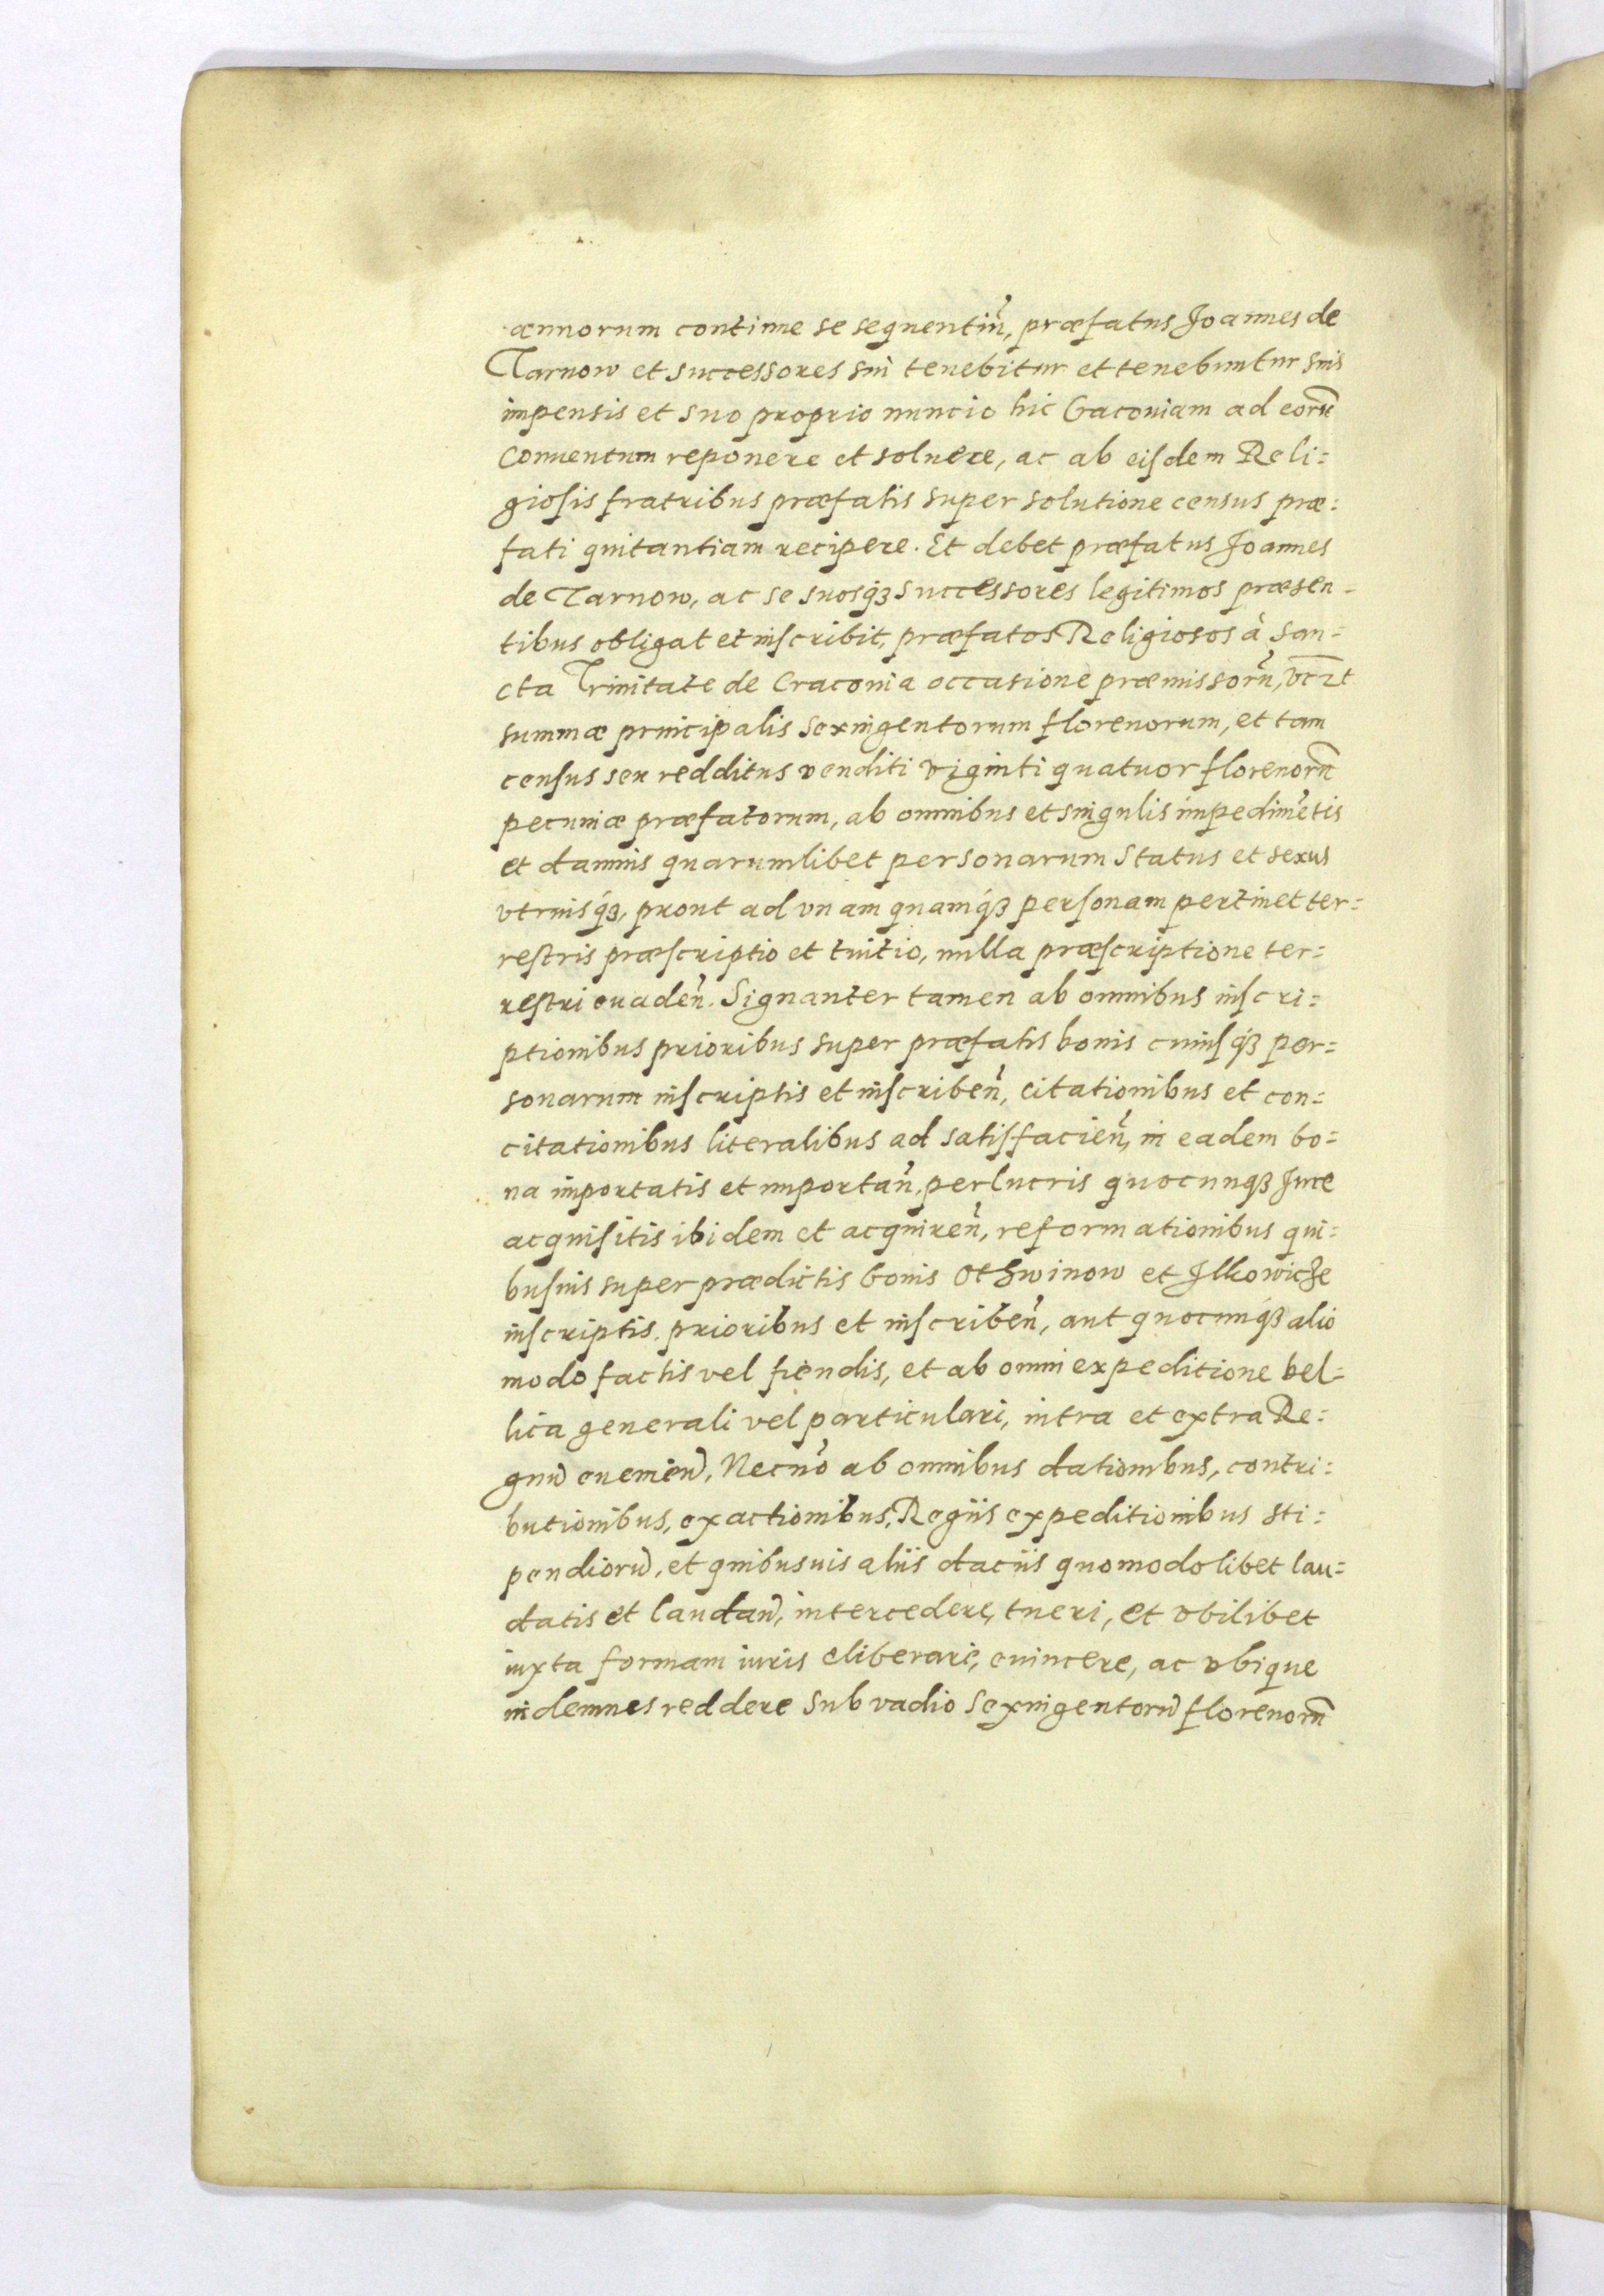 annorum continue se sequentiu᷑, præfatus Joannes de
Tarnow et successores sui tenebitur et tenebuntur suis
impensis et suo proprio nuncio hic Cracoviam ad eorũ
Conuentum reponere et soluere, ac ab eisdem Reli=
giosis fratribus præfatis super solutione census præ=
fati quitantiam recipere. Et debet præfatus Joannes
de Tarnow, ac se suosqꝫ successores legitimos præsen=
tibus obligat et inscribit, præfatos Religiosos à San=
cta Trinitate de Craconia occasione præmissorũ, vcꝫt
summæ principalis sexingentorum florenorum, et tam
census seu redditus venditi viginti quatuor florenorũ
pecuniæ præfatorum, ab omnibus et singulis impedimẽtis
et damnis quarumlibet personarum status et sexus
vtriusqꝫ, prout ad vnam quamqꝫ personam pertinet ter=
restris præscriptio et tuitio, nulla præscriptione ter=
restri euadeñ. Signanter tamen ab omnibus inscri=
ptionibus prioribus super præfatis bonis cuiusqꝫ per=
sonarum inscriptis et inscribeñ, citationibus et con=
citationibus literalibus ad satisfacieñ, in eadem bo=
na importatis et importañ, perlucris quocunqꝫ Jure
acquisitis ibidem et acquireñ, reformationibus qui=
busuis super prædictis bonis Othwinow et Jlkowicze
inscriptis, prioribus et inscribeñ, aut quocunqꝫ alio
modo factis vel fiendis, et ab omni expeditione bel=
lica generali vel particulari, intra et extra Re=
gnũ euenieñ, Necnõ ab omnibus dationibus, contri=
butionibus, exactionibus, Regiis expeditionibus sti=
pendiorũ, et quibusuis aliis daciis quomodolibet lau=
datis et laudañ, intercedere, tueri, et vbilibet
iuxta formam iuris eliberare, euincere, ac vbique
indemnes reddere sub vadio sexingentorũ florenorũ